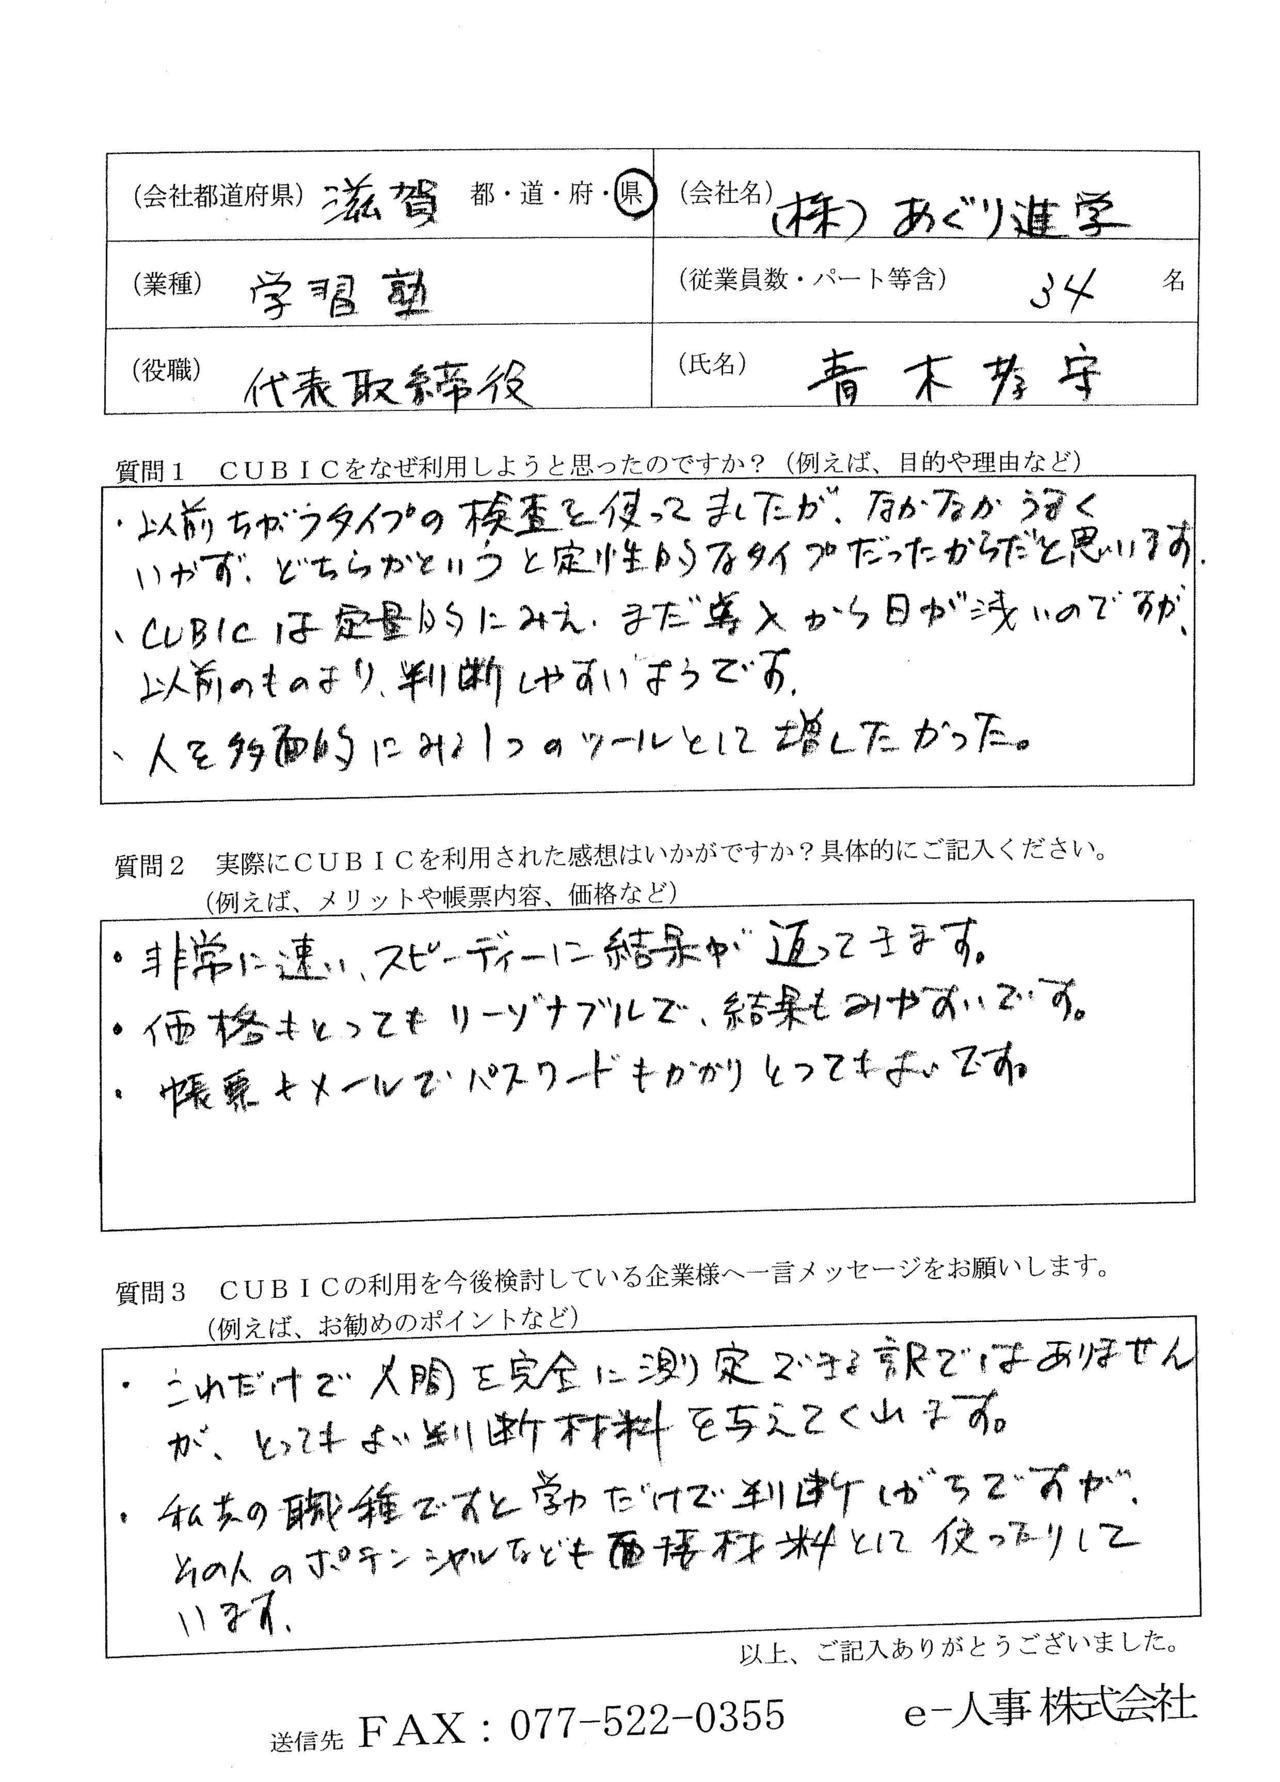 (会社都道府県) 滋賀 都・道・府・県 (会社名) (株)あぐり進学
(業種) 学習塾 (従業員数・パート等含) 34 名
(役職) 代表取締役 (氏名) 青木孝守
質問1 CUBICをなぜ利用しようと思ったのですか?(例えば、目的や理由など)
・以前ちがうタイプの検査を使ってましたが、なかなかうまく
いかず、どちらかというと定性的なタイプだったからだと思います。
、CUBICは定量的にみえ、まだ導入から日が浅いのですが、
以前のものより、判断しやすいようです。
、人を多面的にみる1つのツールとして増したかった。
質問2 実際にCUBICを利用された感想はいかがですか?具体的にご記入ください。
(例えば、メリットや帳票内容、価格など)
・非常に速い、スピーディーに結果が返ってきます。
・価格もとってもリーゾナブルで、結果もみやすいです。
・帳票もメールでパスワードもかかりとってもよいです。
質問3 CUBICの利用を今後検討している企業様へ一言メッセージをお願いします。
(例えば、お勧めのポイントなど)
・これだけで人間を完全に測り定できる訳ではありません
が、とってもよい判断材料を与えてくれます。
・私共の職種ですと学力だけで判断しがちですが、
その人のポテンシャルなども面接材料として使ったりして
います。
以上、ご記入ありがとうございました。
送信先 FAX:077-522-0355 e-人事株式会社